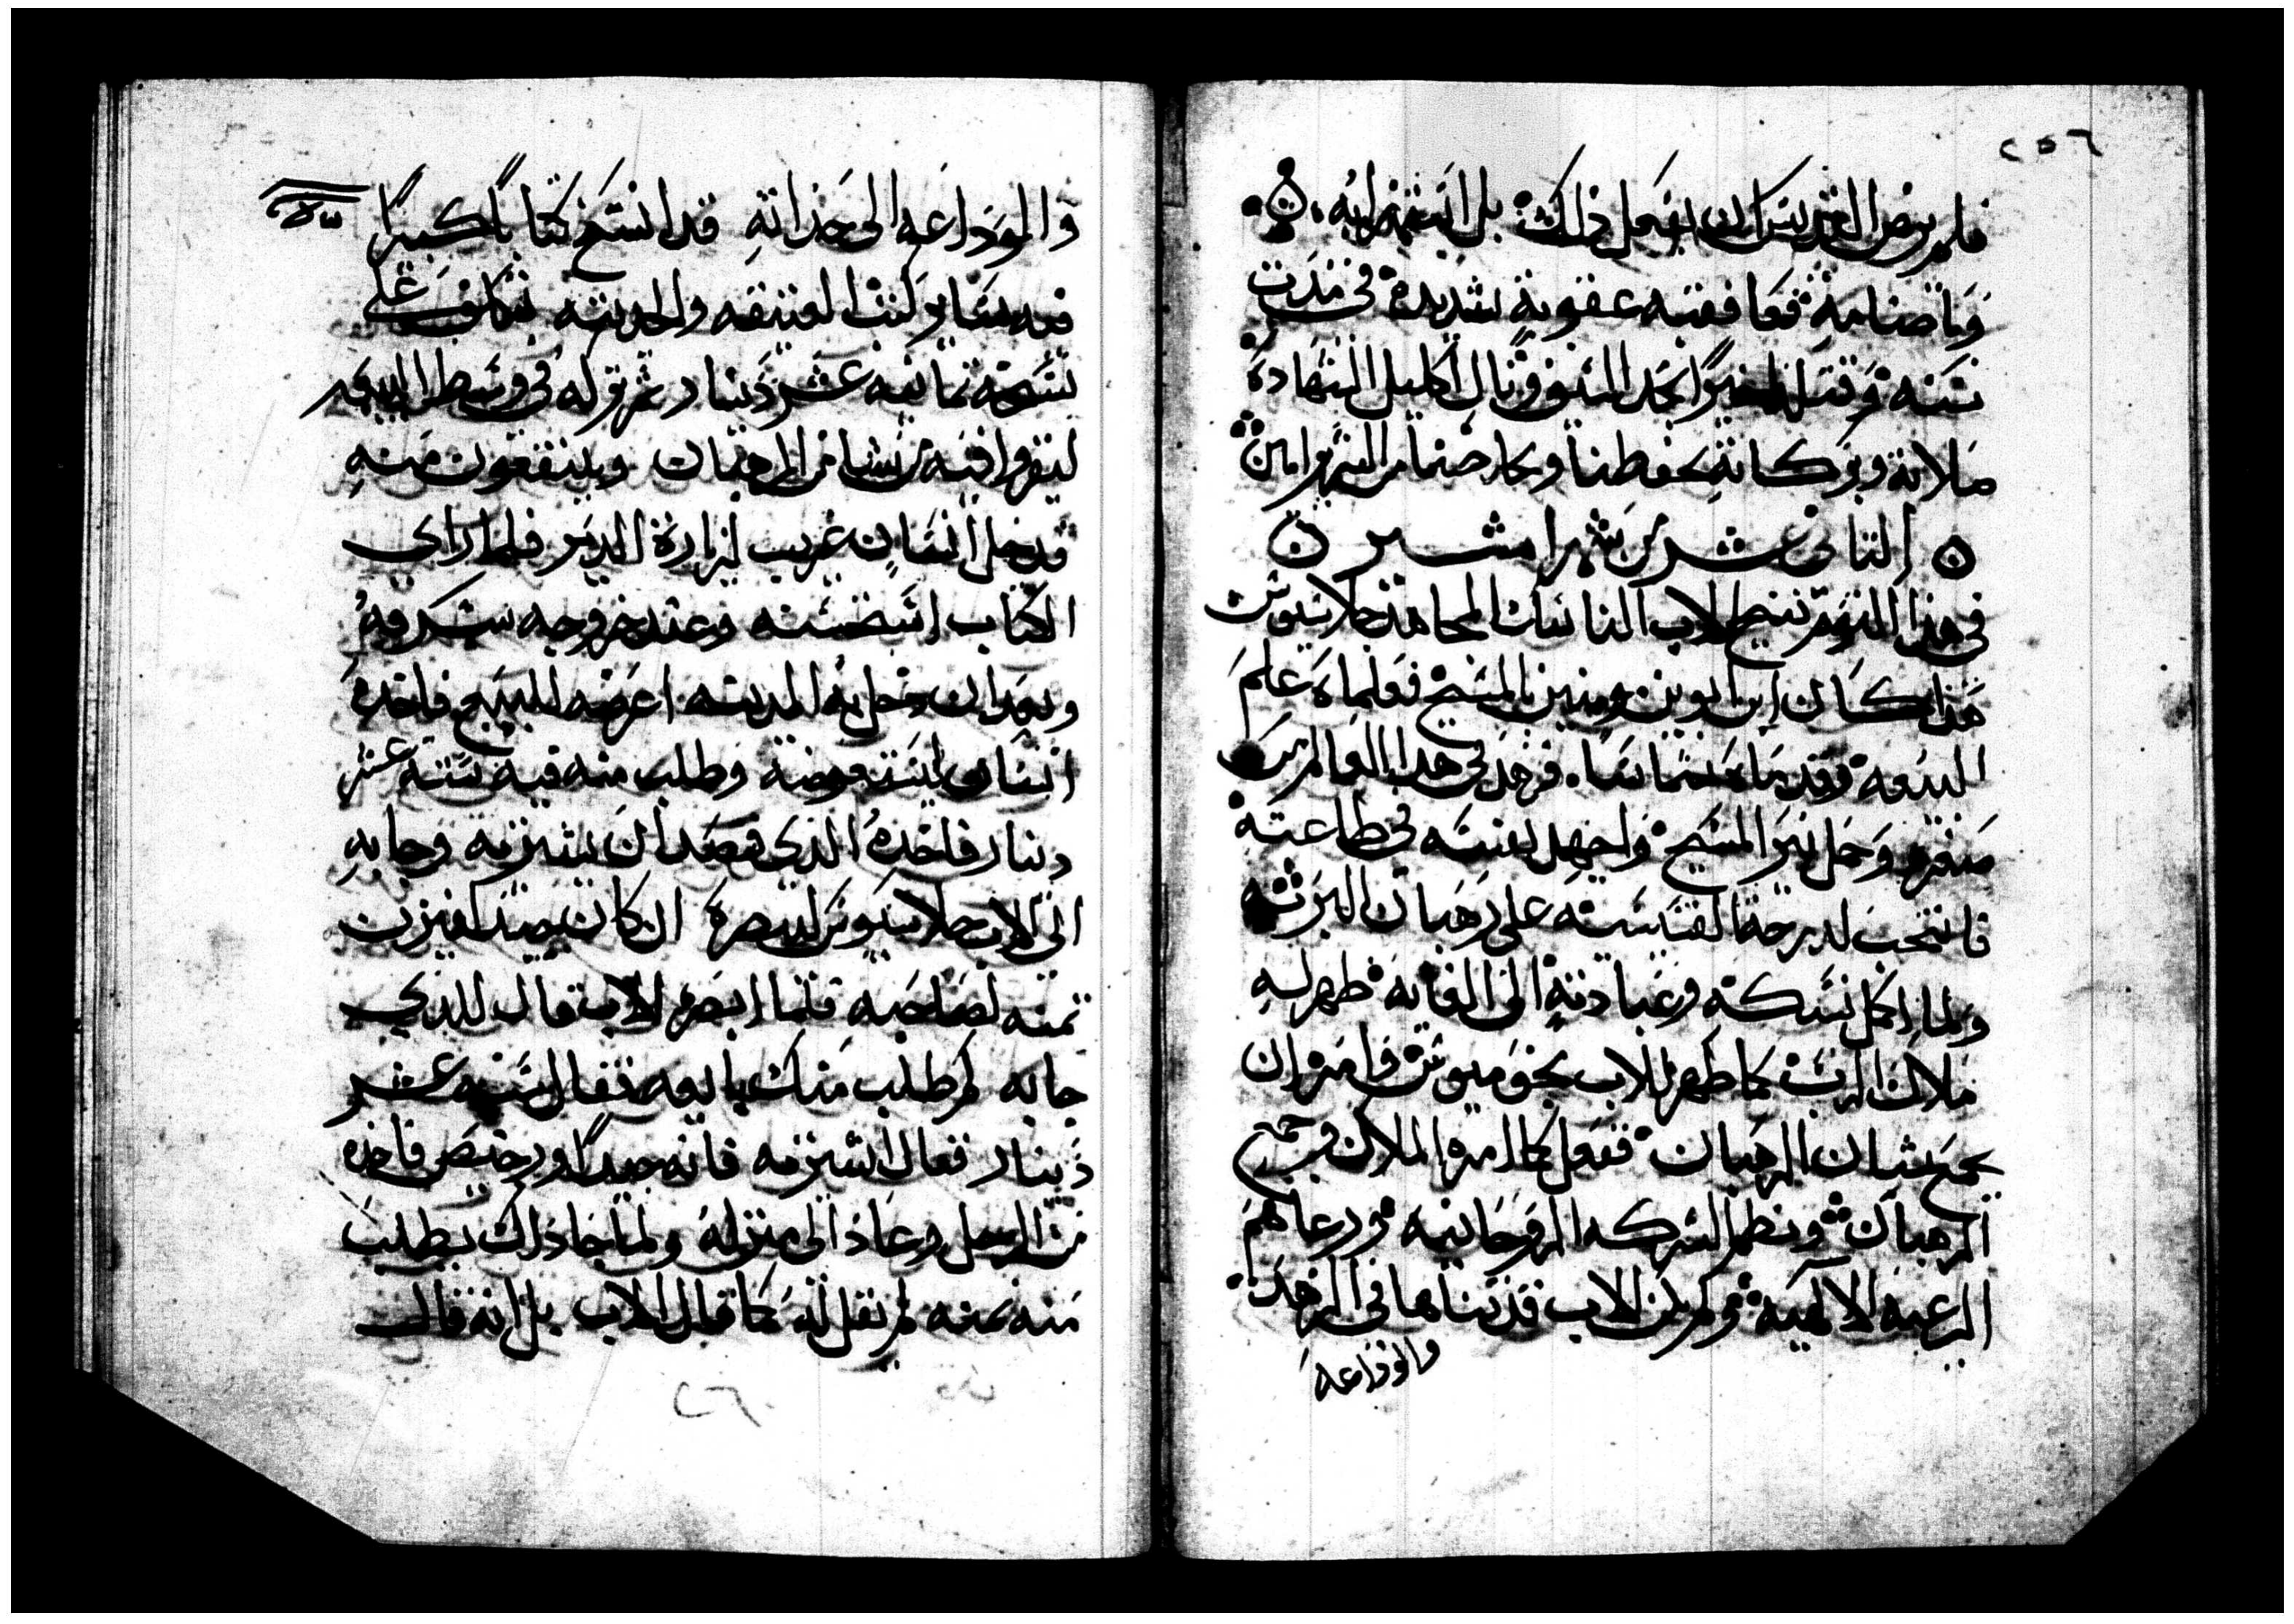 ٢٥٦
فلم يرض القديس ان يفعل ذلك بل انتهرابه
وباصنامه فعاقفته عقوبة شديده في مدت
سنه وقتله اخيرا بحد السيف ونال اكليل الشهاده
صلاته وبركاته تحفظنا وتحارصنا من الشرير امين
الثاني عشر من شهر امشير
في هذا اليوم تنيح الاب الناسك المجاهد جلاسيوس
هذا كان ابن ابوين مومنين بالمسيح فعلماه علم
البيعه وقدماه شماسا فزهد في هذا العالم من
صغره وحمل نير المسيح واجهد نفسه في طاعته
فانتخب لدرجة القسيسه على رهبان البريه
ولما اكمل نسكه وعبادته الى الغايه ظهر له
ملاك الرب كما ظهر للاب بخوميوس فامره ان
يجمع شبان الرهبان ففعل كما امره الملاك وجمع
الرهبان ونظم الشركه الروحانيه ورعاهم
الرعيه الالهيه ولم يكن الاب قد تناها في الزهد
والوداعه
والوداعه الى حد انه قد انتسخ كتابا كبيرا
فيه سائر كتب العتيقه والحديثه تكلف على
نسخه ثمانيه عشر دينار ثم تركه في وسط البيعه
ليقروا فيه من يشا من الرهبان وينتفعون منه
فدخل انسان غريب لزيارة الدير فلما راي
الكتاب استحسنه وعند خروجه سرقه
وبعد ان دخل به المدينه اعرضه للبيع فاخده
انسان ليستعرضه وطلب منه فيه سته عشر
دينار فاخده الذي قصد ان يشتريه وجا به
الى الاب جلاسيوس ليبصره ان كان جيد ليزن
ثمنه لصاحبه فلما ابصره الاب قال للذي
جابه كم طلب منك بايعه فقال سته عشر
دينار فقال اشتريه فانه جيدا ورخيص فاخده
من الرجل وعاد الى منزله ولما جا ذلك يطلب
منه ثمنه لم يقل له كما قال الاب بل انه قال